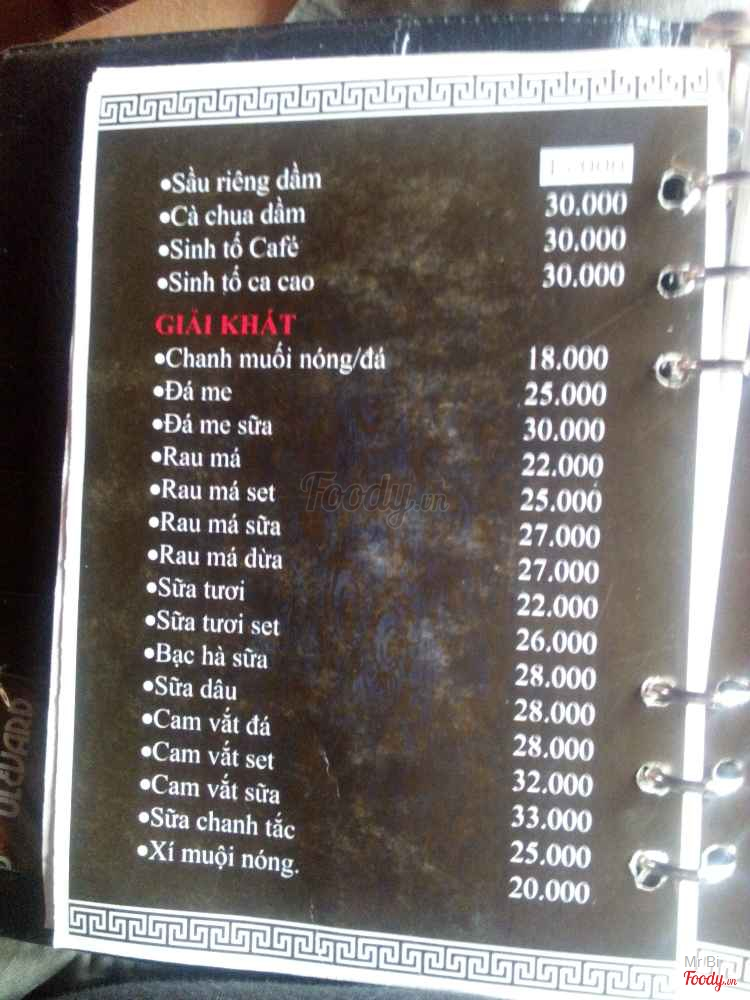 •Sầu riêng dầm
•Cà chua dầm 30.000
•Sinh tố Café 30.000
•Sinh tố ca cao 30.000
GIẢI KHÁT
•Chanh muối nóng/đá 18.000
•Đá me 25.000
•Đá me sữa 30.000
•Rau má 22.000
•Rau má set 25.000
•Rau má sữa 27.000
•Rau má dừa 27.000
•Sữa tươi 22.000
•Sữa tươi set 26.000
•Bạc hà sữa 28.000
•Sữa dâu 28.000
•Cam vắt đá 28.000
•Cam vắt set 32.000
•Cam vắt sữa 33.000
•Sữa chanh tắc 25.000
•Xí muội nóng. 20.000
Foody.vn
Mr Bi
Foody.vn